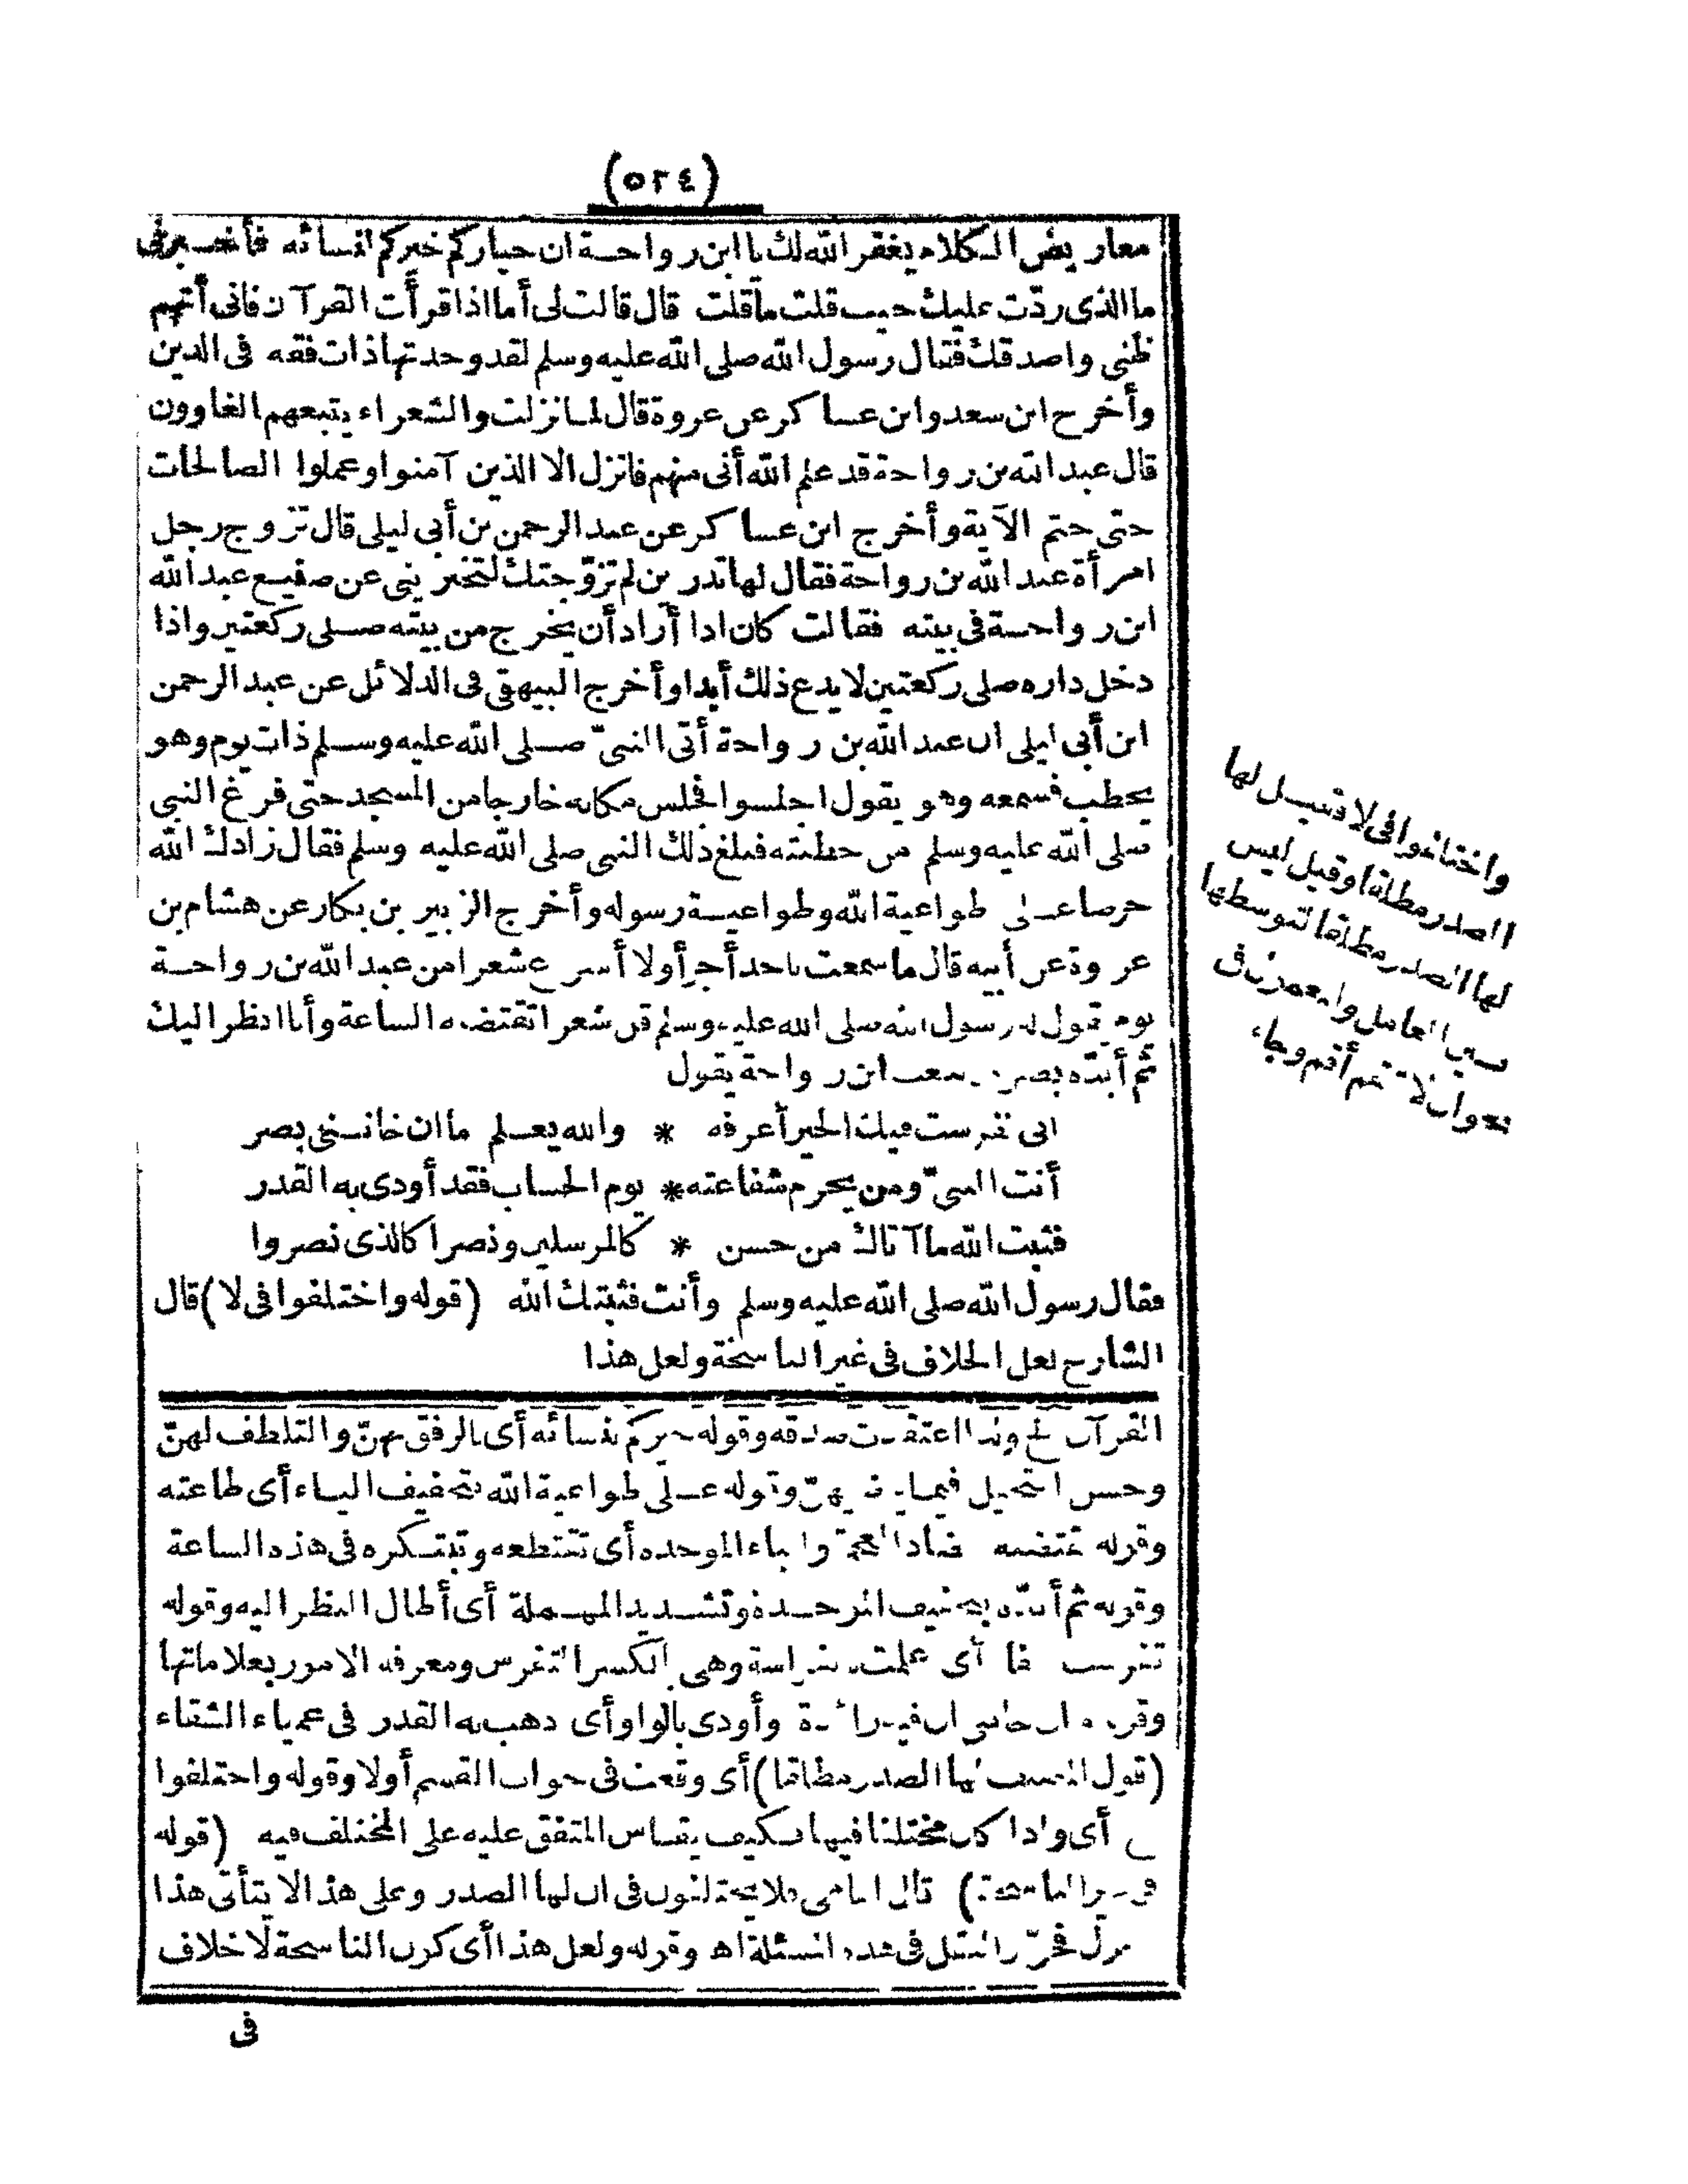 (٥٢٤)
معاريض الكلام يغفر الله لك يا ابن رواحة ان خياركم خيركم لنسائه فأخبرنى
ما الذى ردّت عليك حيث قلت ما قلت قال قالت لى أما اذا قرأت القرآن فانى أتهم
ظنى واصدقك فقال رسول الله صلى الله عليه وسلم لقد وجدتها ذات فقه فى الدين
وأخرج ابن سعد وابن عساكر عن عروة قال لما نزلت والشعراء يتبعهم الغاوون
قال عبد الله بن رواحة قد علم الله أنى منهم فانزل الا الذين آمنوا وعملوا الصالحات
حتى ختم الآية وأخرج ابن عساكر عن عبد الرحمن بن أبى ليلى قال تزوج رجل
امرأة عبد الله بن رواحة فقال لها تدرين لم تزوّجتك لتخبرينى عن صنيع عبد الله
ابن رواحة فى بيته فقالت كان اذا أراد أن يخرج من بيته صلى ركعتين واذا
دخل داره صلى ركعتين لا يدع ذلك أبدا وأخرج البيهقى فى الدلائل عن عبد الرحمن
ابن أبى ليلى ان عبد الله بن رواحة أتى النبىّ صلى الله عليه وسلم ذات يوم وهو
يخطب فسمعه وهو يقول اجلسوا فجلس مكانه خارجا من المسجد حتى فرغ النبى
صلى الله عليه وسلم من خطبته فبلغ ذلك النبى صلى الله عليه وسلم فقال زادك الله
حرصا على طواعية الله وطواعية رسوله وأخرج الزبير بن بكار عن هشام بن
عروة عن أبيه قال ما سمعت باحد أجرأ ولا أسرع شعرا من عبد الله بن رواحة
يوم يقول له رسول الله صلى الله عليه وسلم قل شعرا تقتضبه الساعة وأنا انظر اليك
ثم أبدّه بصره ابن رواحة يقول
انى تفرست فيك الخير أعرفه * والله يعلم ما ان خاننى بصر
أنت النبىّ ومن يحرم شفاعته * يوم الحساب فقد أودى به القدر
فثبت الله ما آتاك من حسن * كالمرسلين ونصرا كالذى نصروا
فقال رسول الله صلى الله عليه وسلم وأنت فثبتك الله (قوله واختلفوا فى لا) قال
الشارح لعل الخلاف فى غير الناسخة ولعل هذا
القرآن الخ وبهذا اعتقدت صدقه وقوله خيركم لنسائه أى بالرفق بهنّ والتلطف لهنّ
وحسن التحيل فيما وقوله على طواعية الله بتخفيف الياء أى طاعته
وقوله تقتضبه بالضاد المعجمة والباء الموحدة أى تقتطعه وتبتكره فى هذه الساعة
وقوله ثم أبدّه بتخفيف الموحدة وتشديد المهملة أى أطال النظر اليه وقوله
تفرست أى علمت بفراسة وهى بالكسر التفرس ومعرفة الامور بعلاماتها
وقوله ما ان خاننى ان فيه زائدة وأودى بالواو أى ذهب به القدر فى عمياء الشقاء
(قول المصنف لها الصدر مطلقا) أى وقعت فى جواب القسم أولا وقوله واختلفوا
أى واذا كان مختلفا فيها فكيف يقاس المتفق عليه على المختلف فيه (قوله
فى غير الناسخة) قال الشامى فلا يختلفون فى ان لها الصدر وعلى هذا لا يتأتى هذا
فحرّر النقل فى هذه المسئلة اه وقوله ولعل هذا أى كون الناسخة لا خلاف
فى
واختلفوا فى لا فقيل لها
الصدر مطلقا وقيل ليس
لها الصدر مطلقا لتوسطها
بين العامل والمعمول فى
نحو ان لا تقم أقم وجاء